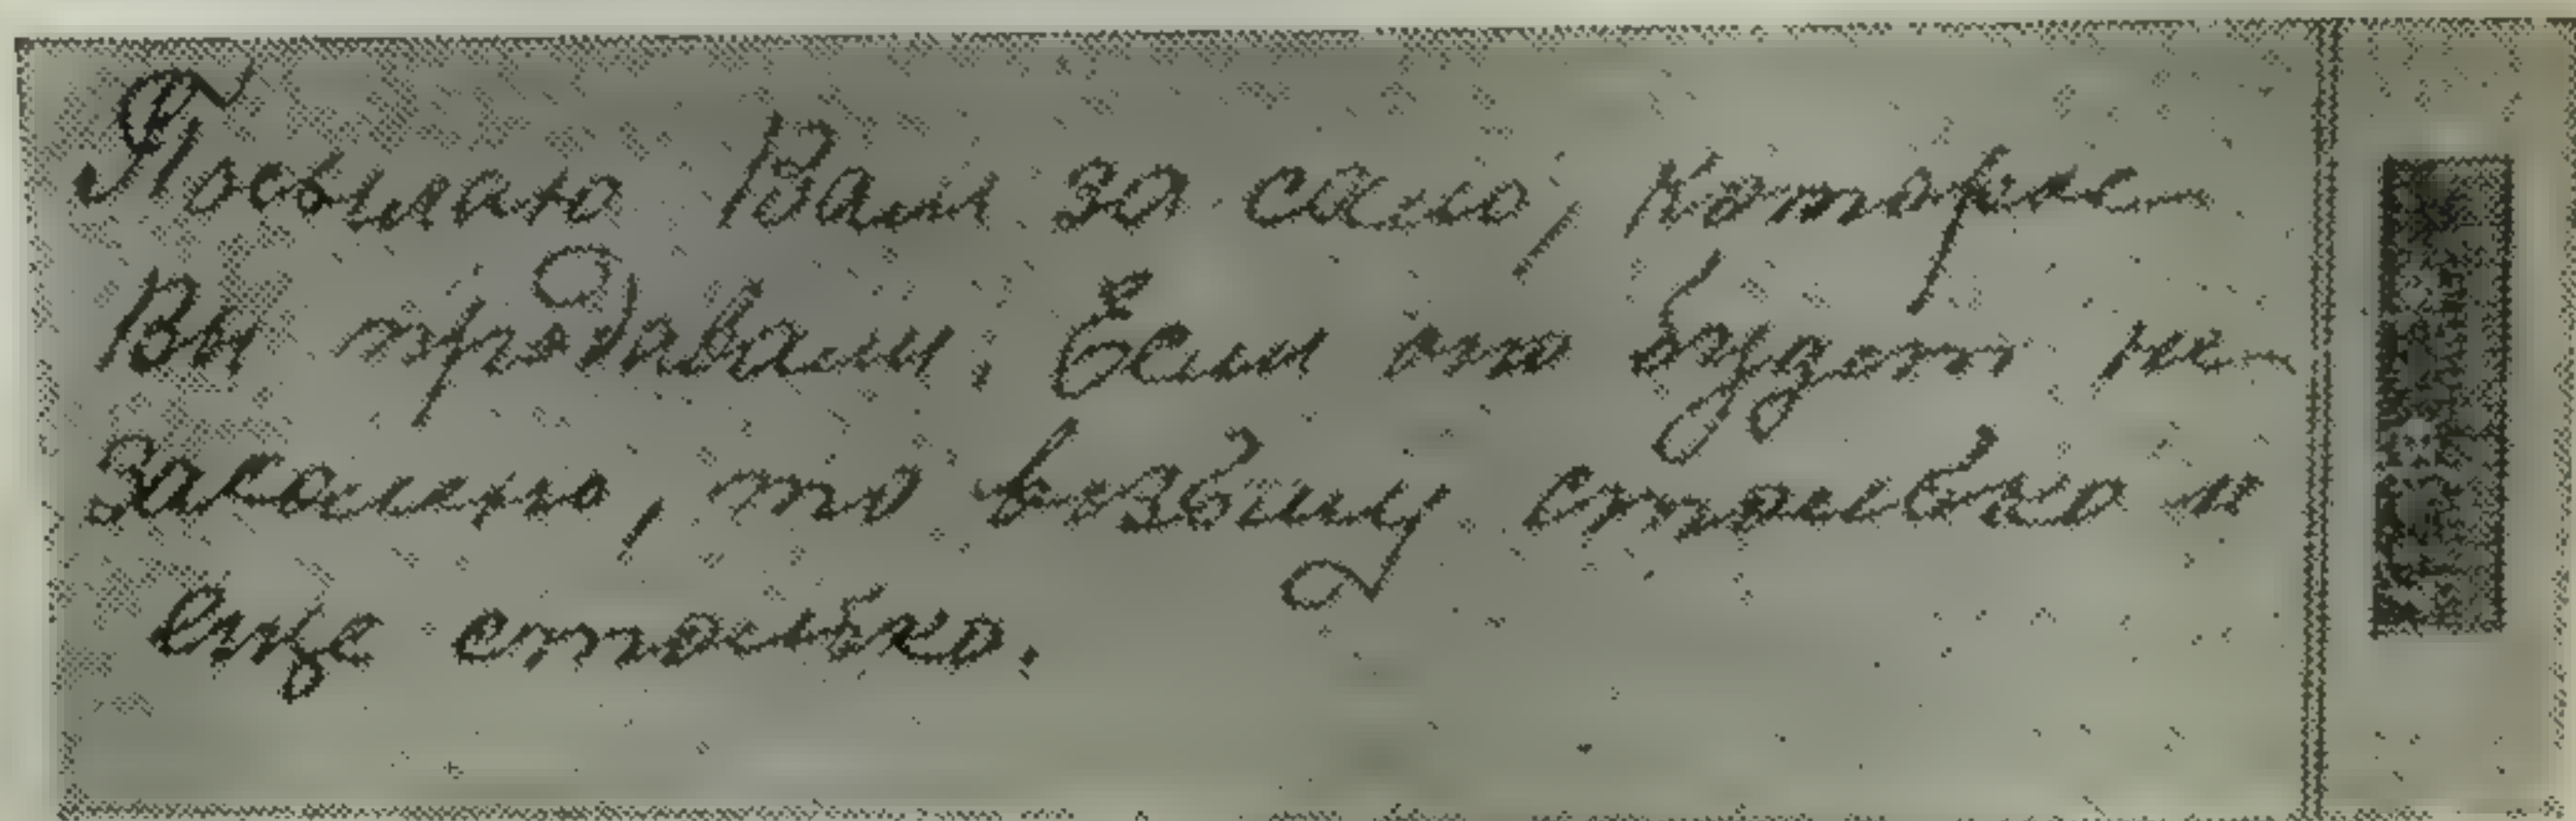 Посылаю Вам за сало, которое
Вы продавали. Если это будет не
законно, то возьму столько и
еще столько.